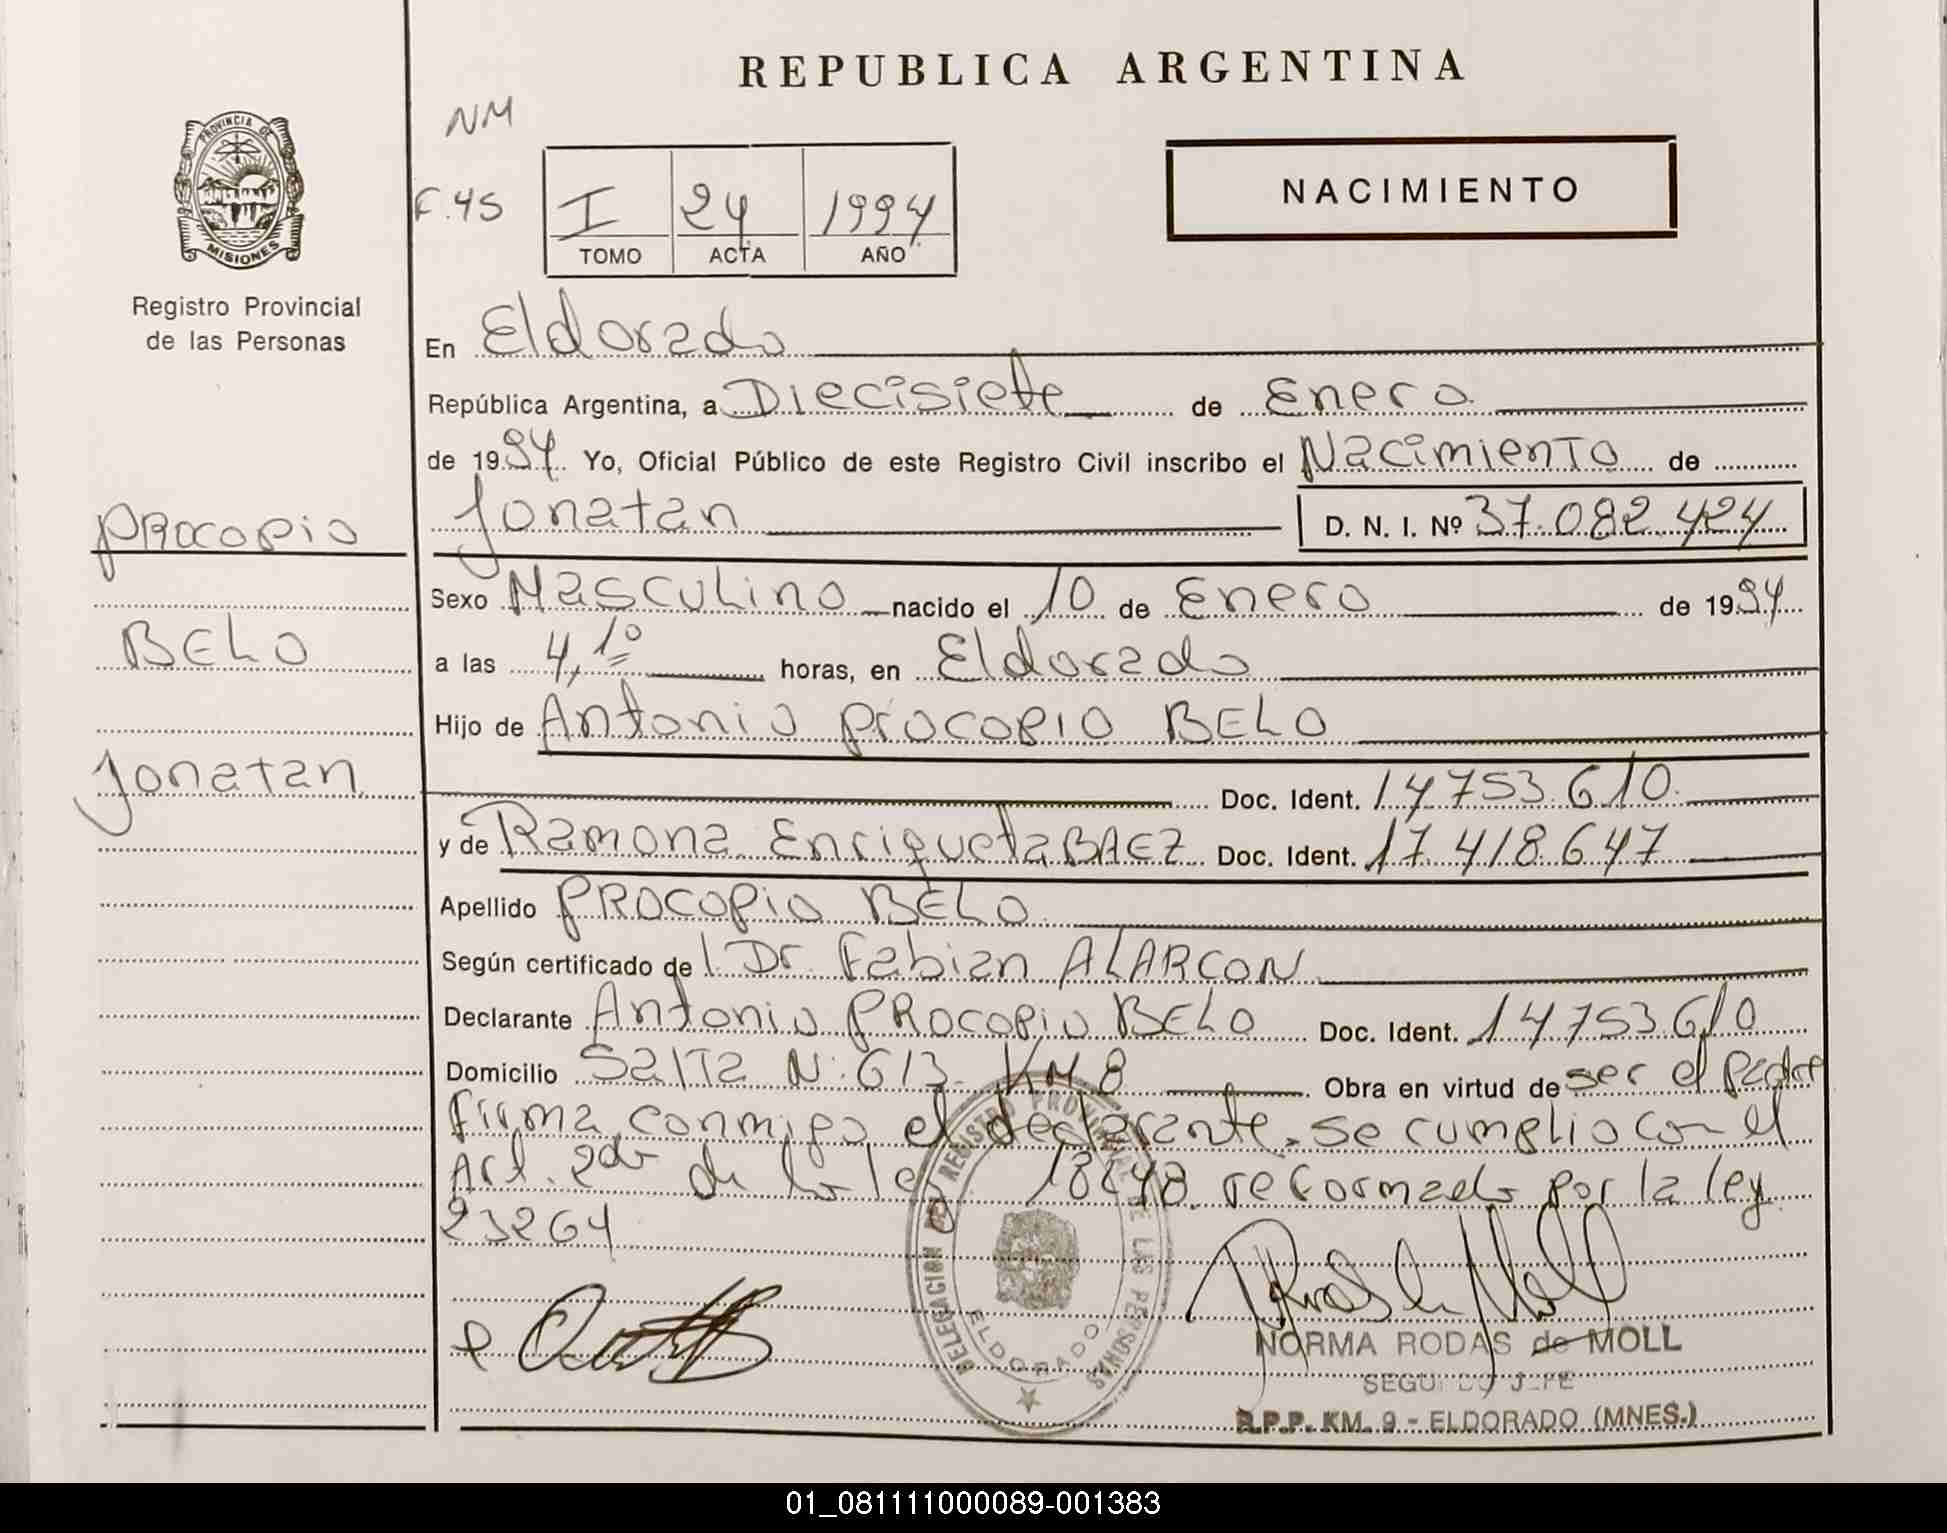 REPUBLICA ARGENTINA
NM
PROVINCIA DE
MISIONES
Registro Provincial
de las Personas
F.45
I 24 1994
TOMO ACTA AÑO
NACIMIENTO
En Eldorado
República Argentina, a Diecisiete de Enero
de 1994. Yo, Oficial Público de este Registro Civil inscribo el Nacimiento de
Jonatan D. N. I. Nº 37.082.424
PROCOPIO
BELO
Jonatan
Sexo Masculino nacido el 10 de Enero de 1994
a las 4,10 horas, en Eldorado
Hijo de Antonio PROCOPIO BELO
Doc. Ident. 14.753.610
y de Ramona Enriqueta BAEZ Doc. Ident. 17.418.647
Apellido PROCOPIO BELO
Según certificado del Dr. Fabian ALARCON
Declarante Antonio PROCOPIO BELO Doc. Ident. 14.753.610
Domicilio Salta Nº 613 KM 8 Obra en virtud de ser el padre
firma conmigo el declarante. se cumplio con el
Art. 2do de la ley 18248 reformado por la ley
23264
DELEGACION DEL REGISTRO PROVINCIAL DE LAS PERSONAS
ELDORADO
NORMA RODAS de MOLL
SEGUNDO JEFE
R.P.P. KM. 9 - ELDORADO (MNES.)
01_081111000089-001383